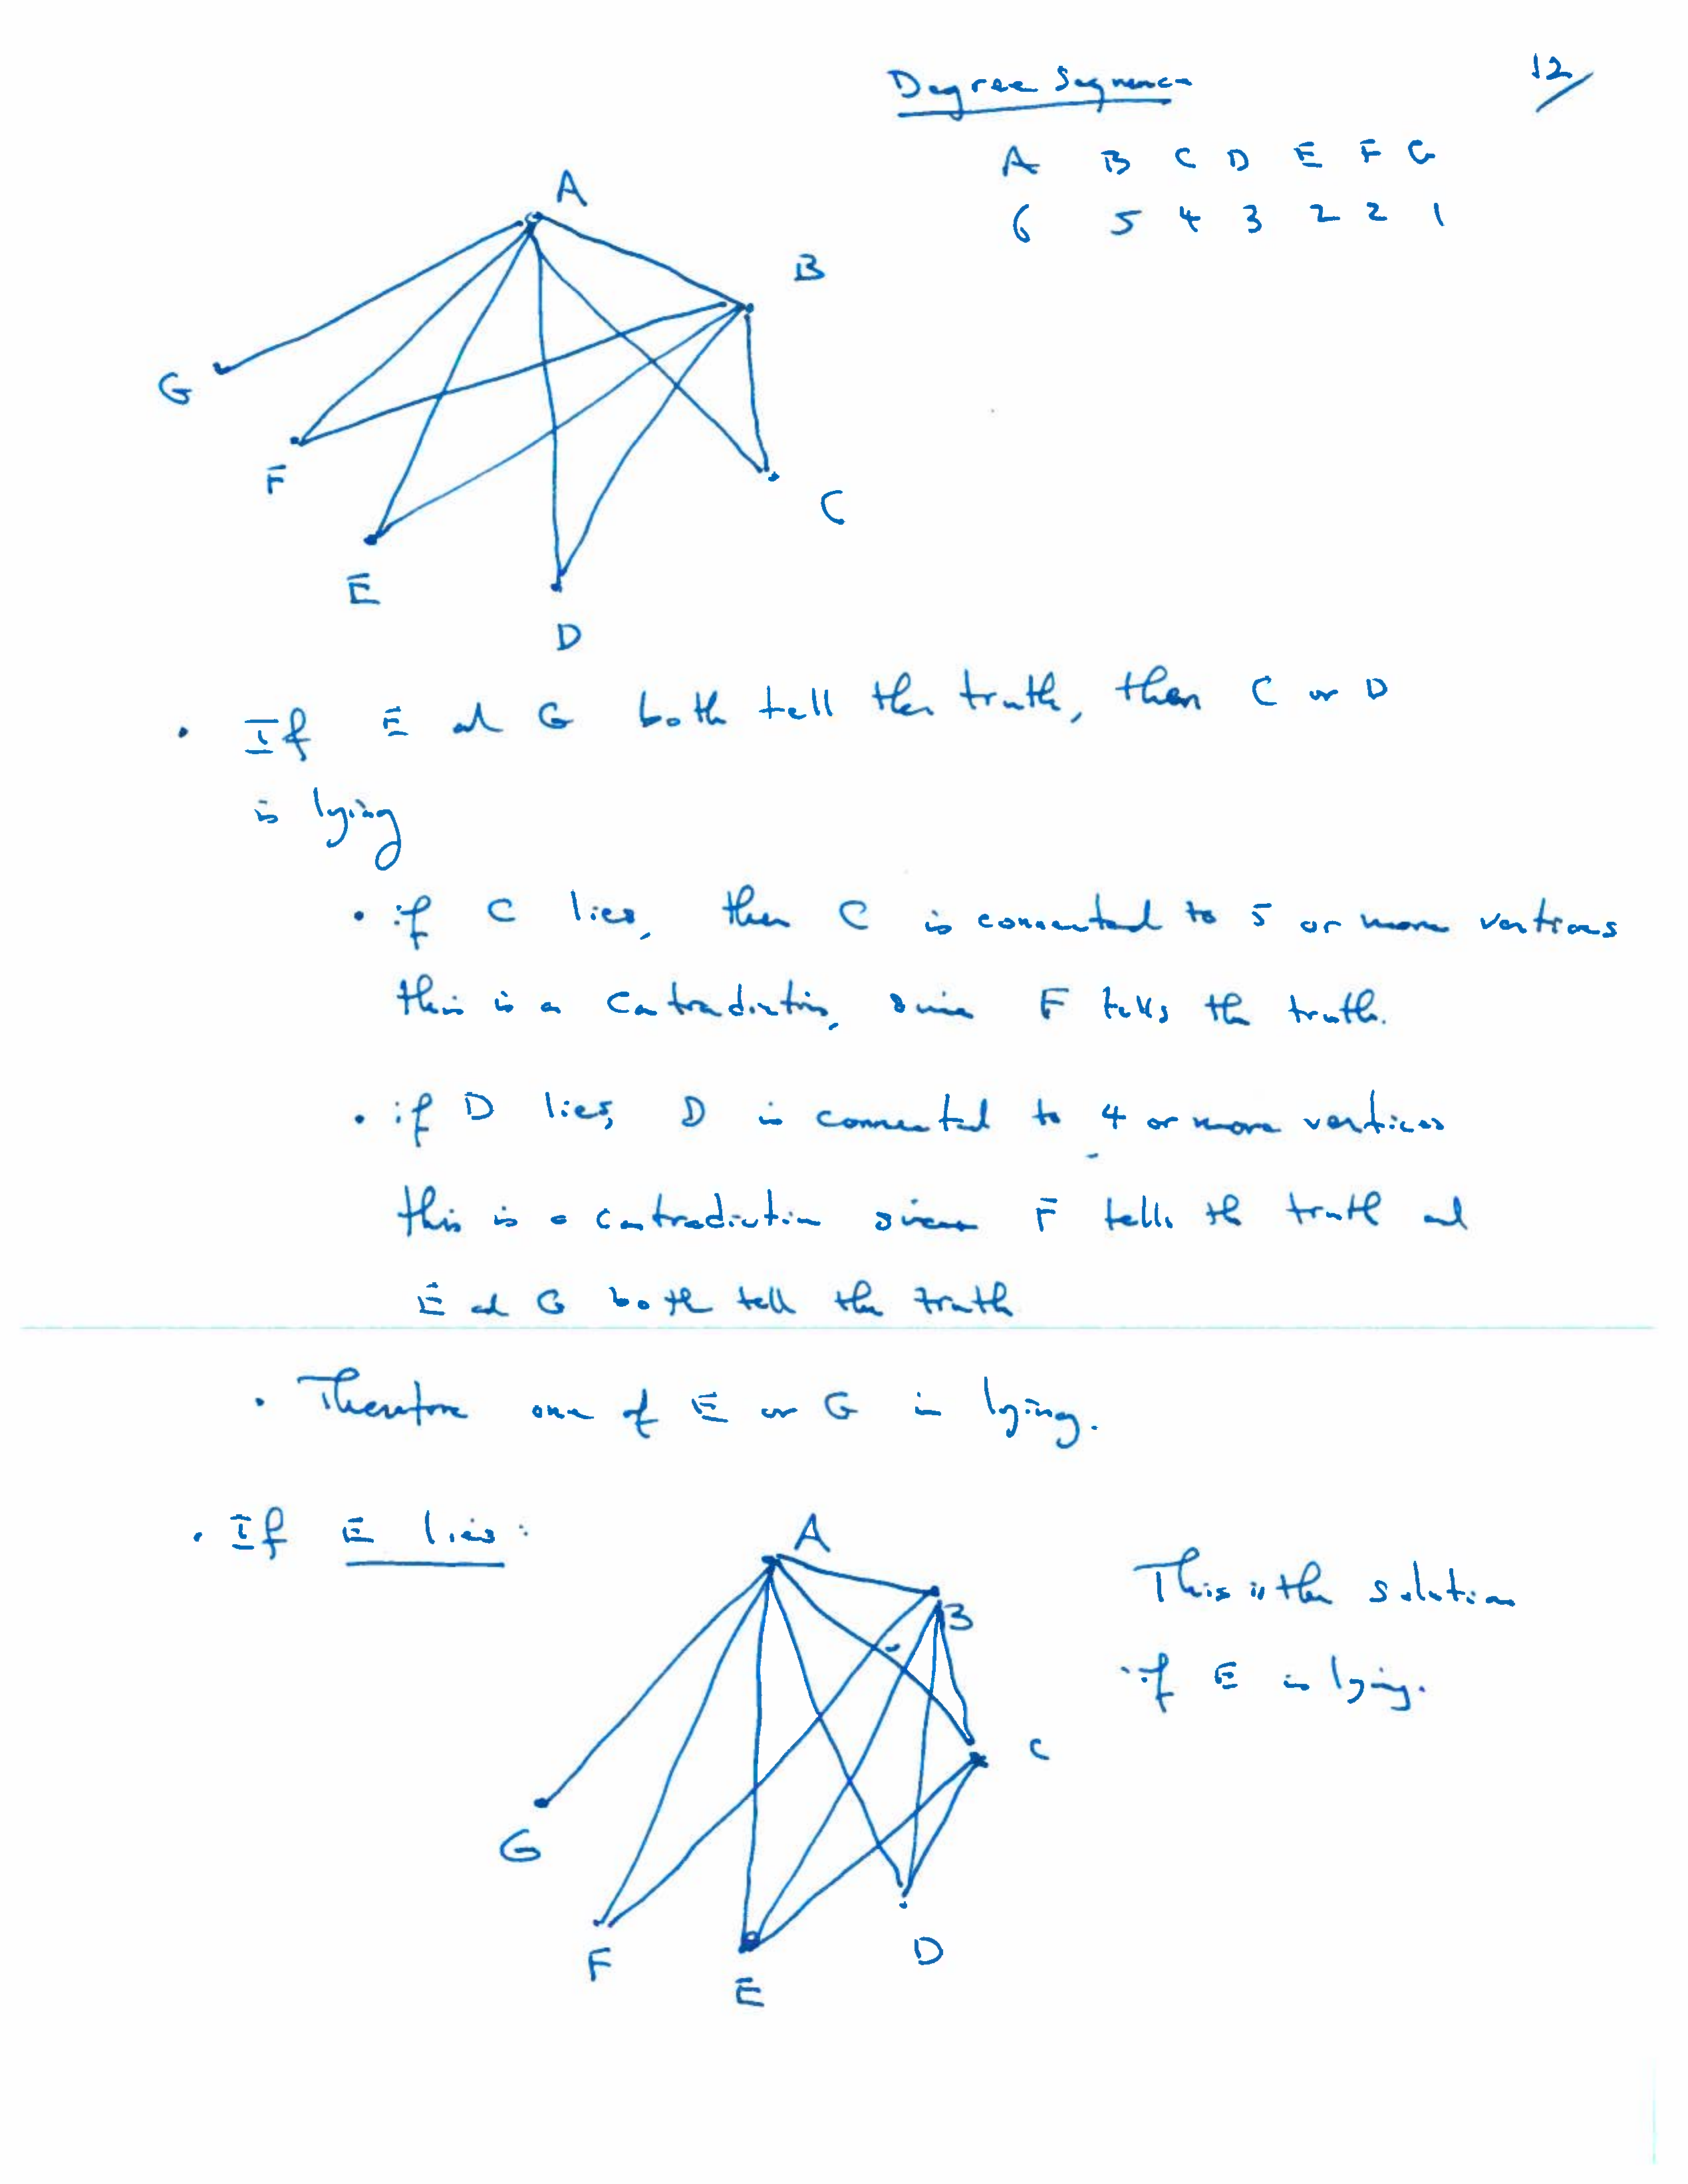 Degree Sequence
12/
A B C D E F G
6 5 4 3 2 2 1
A
B
G
F
C
E
D
• If E and G both tell the truth, then C or D
is lying
• if C lies, then C is connected to 5 or more vertices
this is a contradiction, since F tells the truth.
• if D lies, D is connected to 4 or more vertices
this is a contradiction since F tells the truth and
E and G both tell the truth
• Therefore one of E or G is lying.
• If E lies:
A
This is the solution
B
if E is lying.
C
G
F
D
E